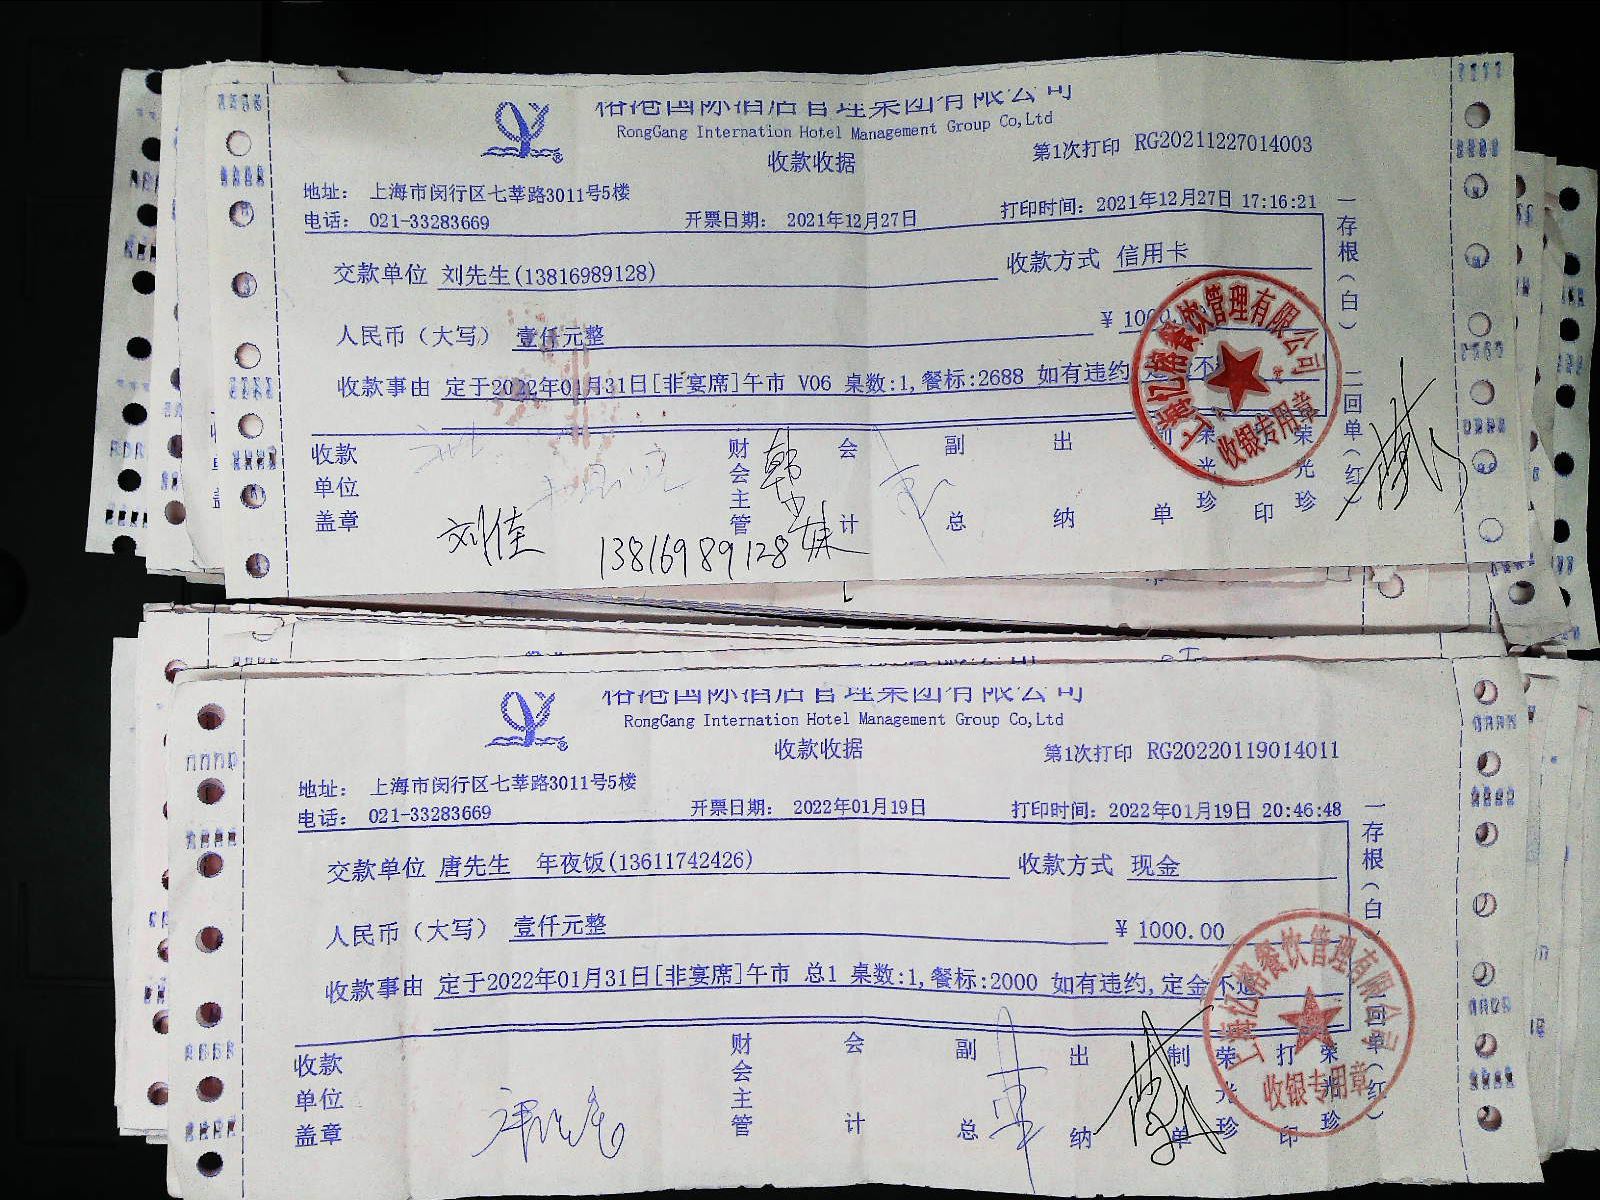 国际酒店管理集团有限公司
RongGang Internation Hotel Management Group Co,Ltd
收款收据
第1次打印 RG20211227014003
地址： 上海市闵行区七莘路3011号5楼
电话： 021-33283669 开票日期： 2021年12月27日 打印时间：2021年12月27日 17:16:21
交款单位 刘先生(13816989128) 收款方式 信用卡
人民币（大写） 壹仟元整 ￥
收款事由 定于2022年01月31日[非宴席]午市 V06 桌数:1,餐标:2688 如有违约
收款单位盖章 财会主管 会计 副总 出纳 制单 荣光珍 印 荣光珍
一存根（白） 二回单（红）
刘佳 13816989128
餐饮管理有限公司
收银专用章
国际酒店管理集团有限公司
RongGang Internation Hotel Management Group Co,Ltd
收款收据
第1次打印 RG20220119014011
地址： 上海市闵行区七莘路3011号5楼
电话： 021-33283669 开票日期： 2022年01月19日 打印时间：2022年01月19日 20:46:48
交款单位 唐先生 年夜饭(13611742426) 收款方式 现金
人民币（大写） 壹仟元整 ￥ 1000.00
收款事由 定于2022年01月31日[非宴席]午市 总1 桌数:1,餐标:2000 如有违约,定金不退
收款单位盖章 财会主管 会计 副总 出纳 制单 荣光珍 打印 荣光珍
一存根（白） 二回单（红）
餐饮管理有限公司
收银专用章